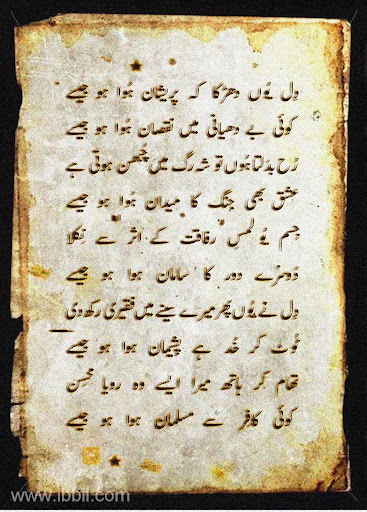 دِل یُوں دھڑکا کہ پریشان ہُوا ہو جیسے
کوئی بے دھیانی میں نقصان ہُوا ہو جیسے
رُخ بدلتا ہُوں تو شہ رگ میں چُبھن ہوتی ہے
عشق بھی جنگ کا میدان ہُوا ہو جیسے
جسم یُوں لمسِ رفاقت کے اثر سے نکلا
دُوسرے دور کا سامان ہوا ہو جیسے
دِل نے یُوں پھر میرے سینے میں فقیری رکھ دی
ٹُوٹ کر خُد ہے پشیمان ہوا ہو جیسے
تھام کر ہاتھ میرا ایسے وہ رویا محسن
کوئی کافر سے مسلمان ہوا ہو جیسے
www.ibbii.com